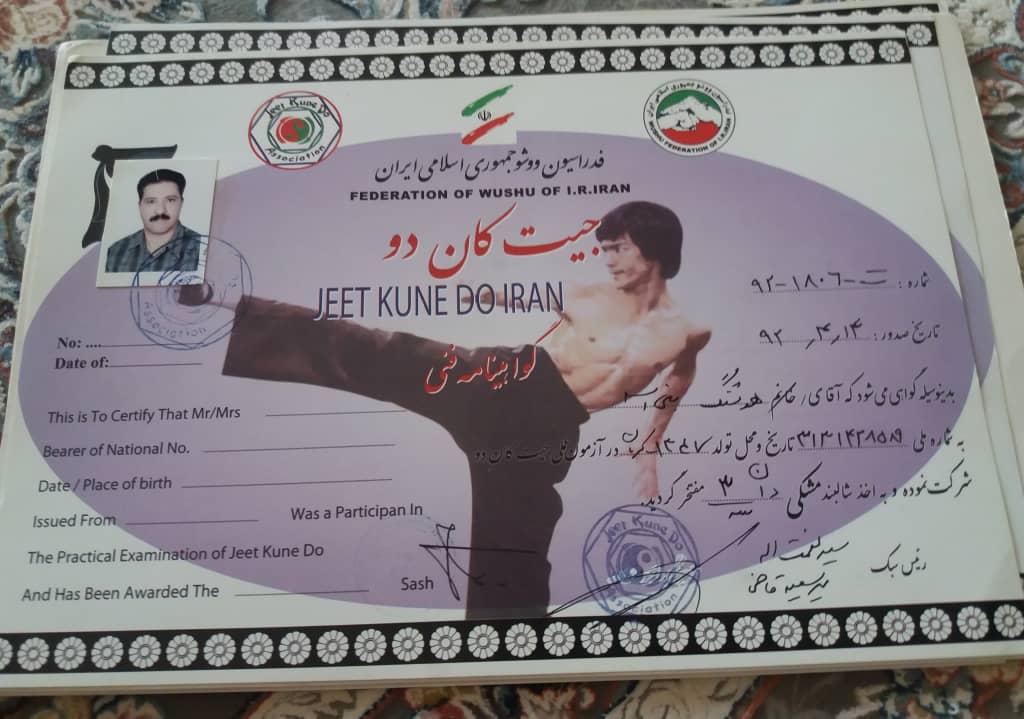 Jeet Kune Do
Association
فدراسیون ووشو جمهوری اسلامی ایران
WUSHU FEDERATION OF I.R.IRAN
فدراسیون ووشو جمهوری اسلامی ایران
FEDERATION OF WUSHU OF I.R.IRAN
جیت کان دو
JEET KUNE DO IRAN
گواهینامه فنی
شماره: ۹۲-۱۸۰۶-
تاریخ صدور: ۹۲٫۴٫۱۴
بدینوسیله گواهی می شود که آقای/خانم هوشنگ
به شماره ملی ۳۱۳۱۴۲۸۵۸۹ تاریخ و محل تولد در آزمون فنی جیت کان دو
شرکت نموده و به اخذ شالبند مشکی دان ۳ مفتخر گردید.
سه
رئیس سبک
سید نعمت اله
میر سعید قاضی
No: ....
Date of:
This is To Certify That Mr/Mrs
Bearer of National No.
Date / Place of birth
Issued From Was a Participan In
The Practical Examination of Jeet Kune Do
And Has Been Awarded The Sash
Association
Jeet Kune Do
Association